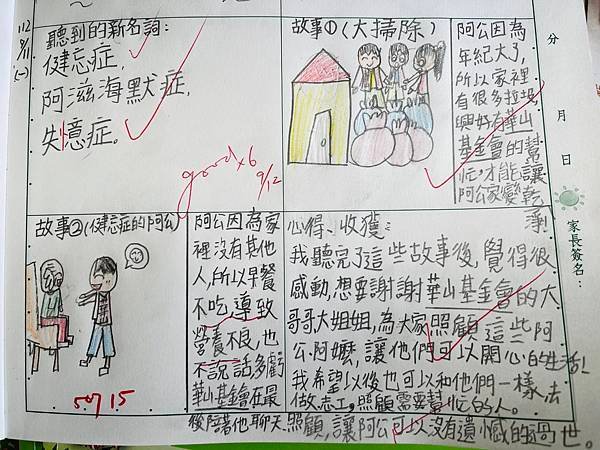 112
9/11
(一)
聽到的新名詞：
健忘症,
阿滋海默症,
失憶症。
good x6
9/12
故事①(大掃除)
阿公因為
年紀大了,
所以家裡
有很多垃圾,
興好有華山
基金會的幫
忙,才能讓
阿公家變乾
淨
分
月
日
家長簽名：
故事②(健忘症的阿公)
阿公因為家
裡沒有其他
人,所以早餐
不吃,導致
營養不良,也
不說話多虧
華山基金會在最
後陪著他聊天、照顧,讓阿公可以沒有遺憾的過世。
心得、收獲：
我聽完了這些故事後,覺得很
感動,想要謝謝華山基金會的大
哥哥大姐姐,為大家照顧這些阿
公.阿嬤,讓他們可以開心的生活!
我希望以後也可以和他們一樣,去
做志工,照顧需要幫忙的人。